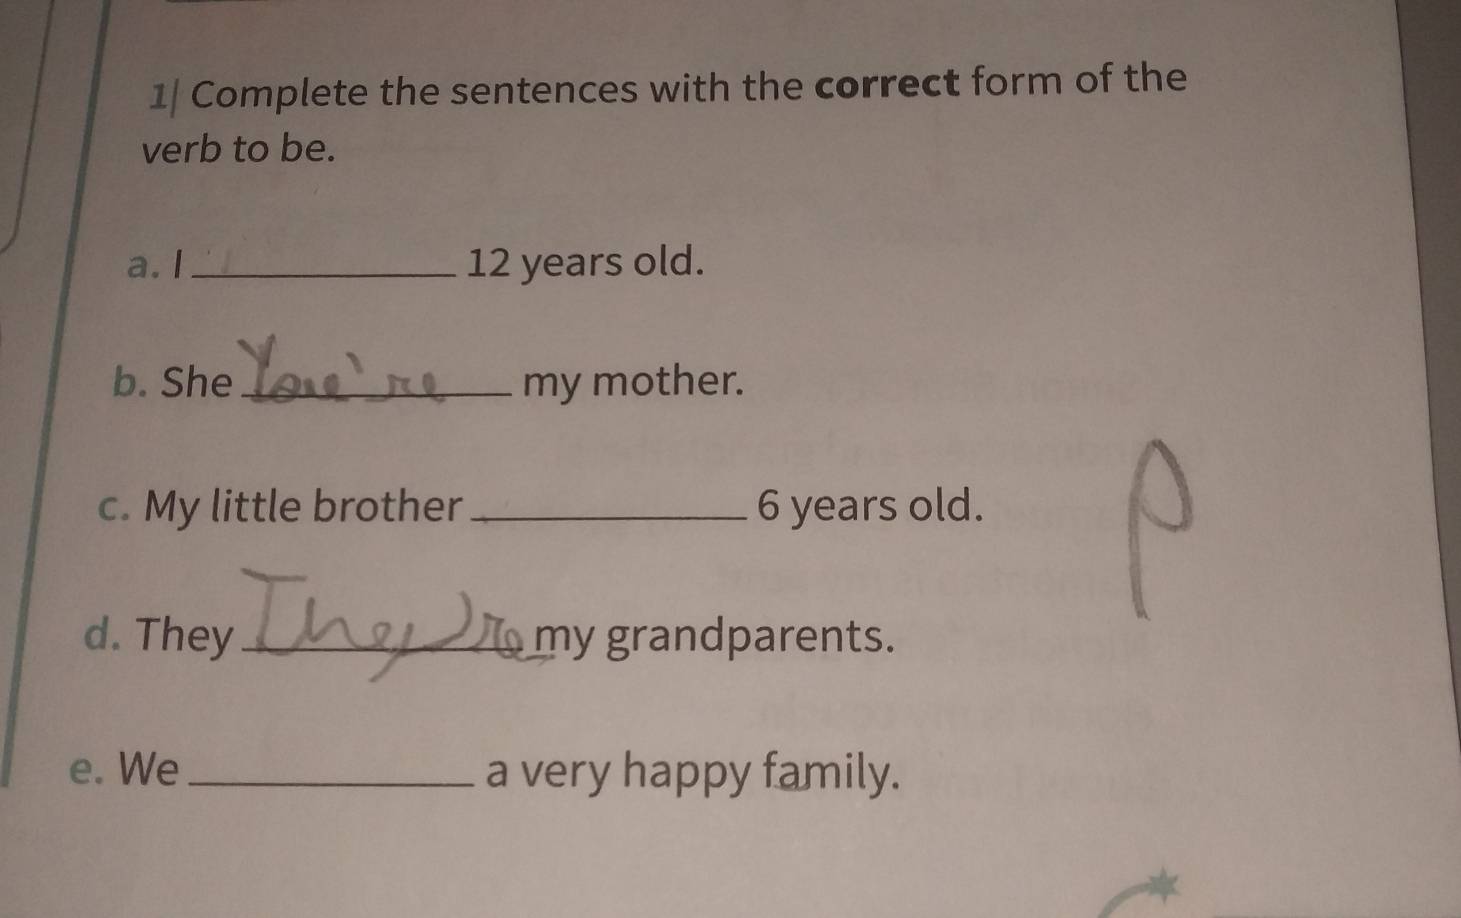 1| Complete the sentences with the correct form of the
verb to be.
a. I ____________ 12 years old.
b. She You're ____________ my mother.
c. My little brother ____________ 6 years old.
d. They They're ____________ my grandparents.
e. We ____________ a very happy family.
P